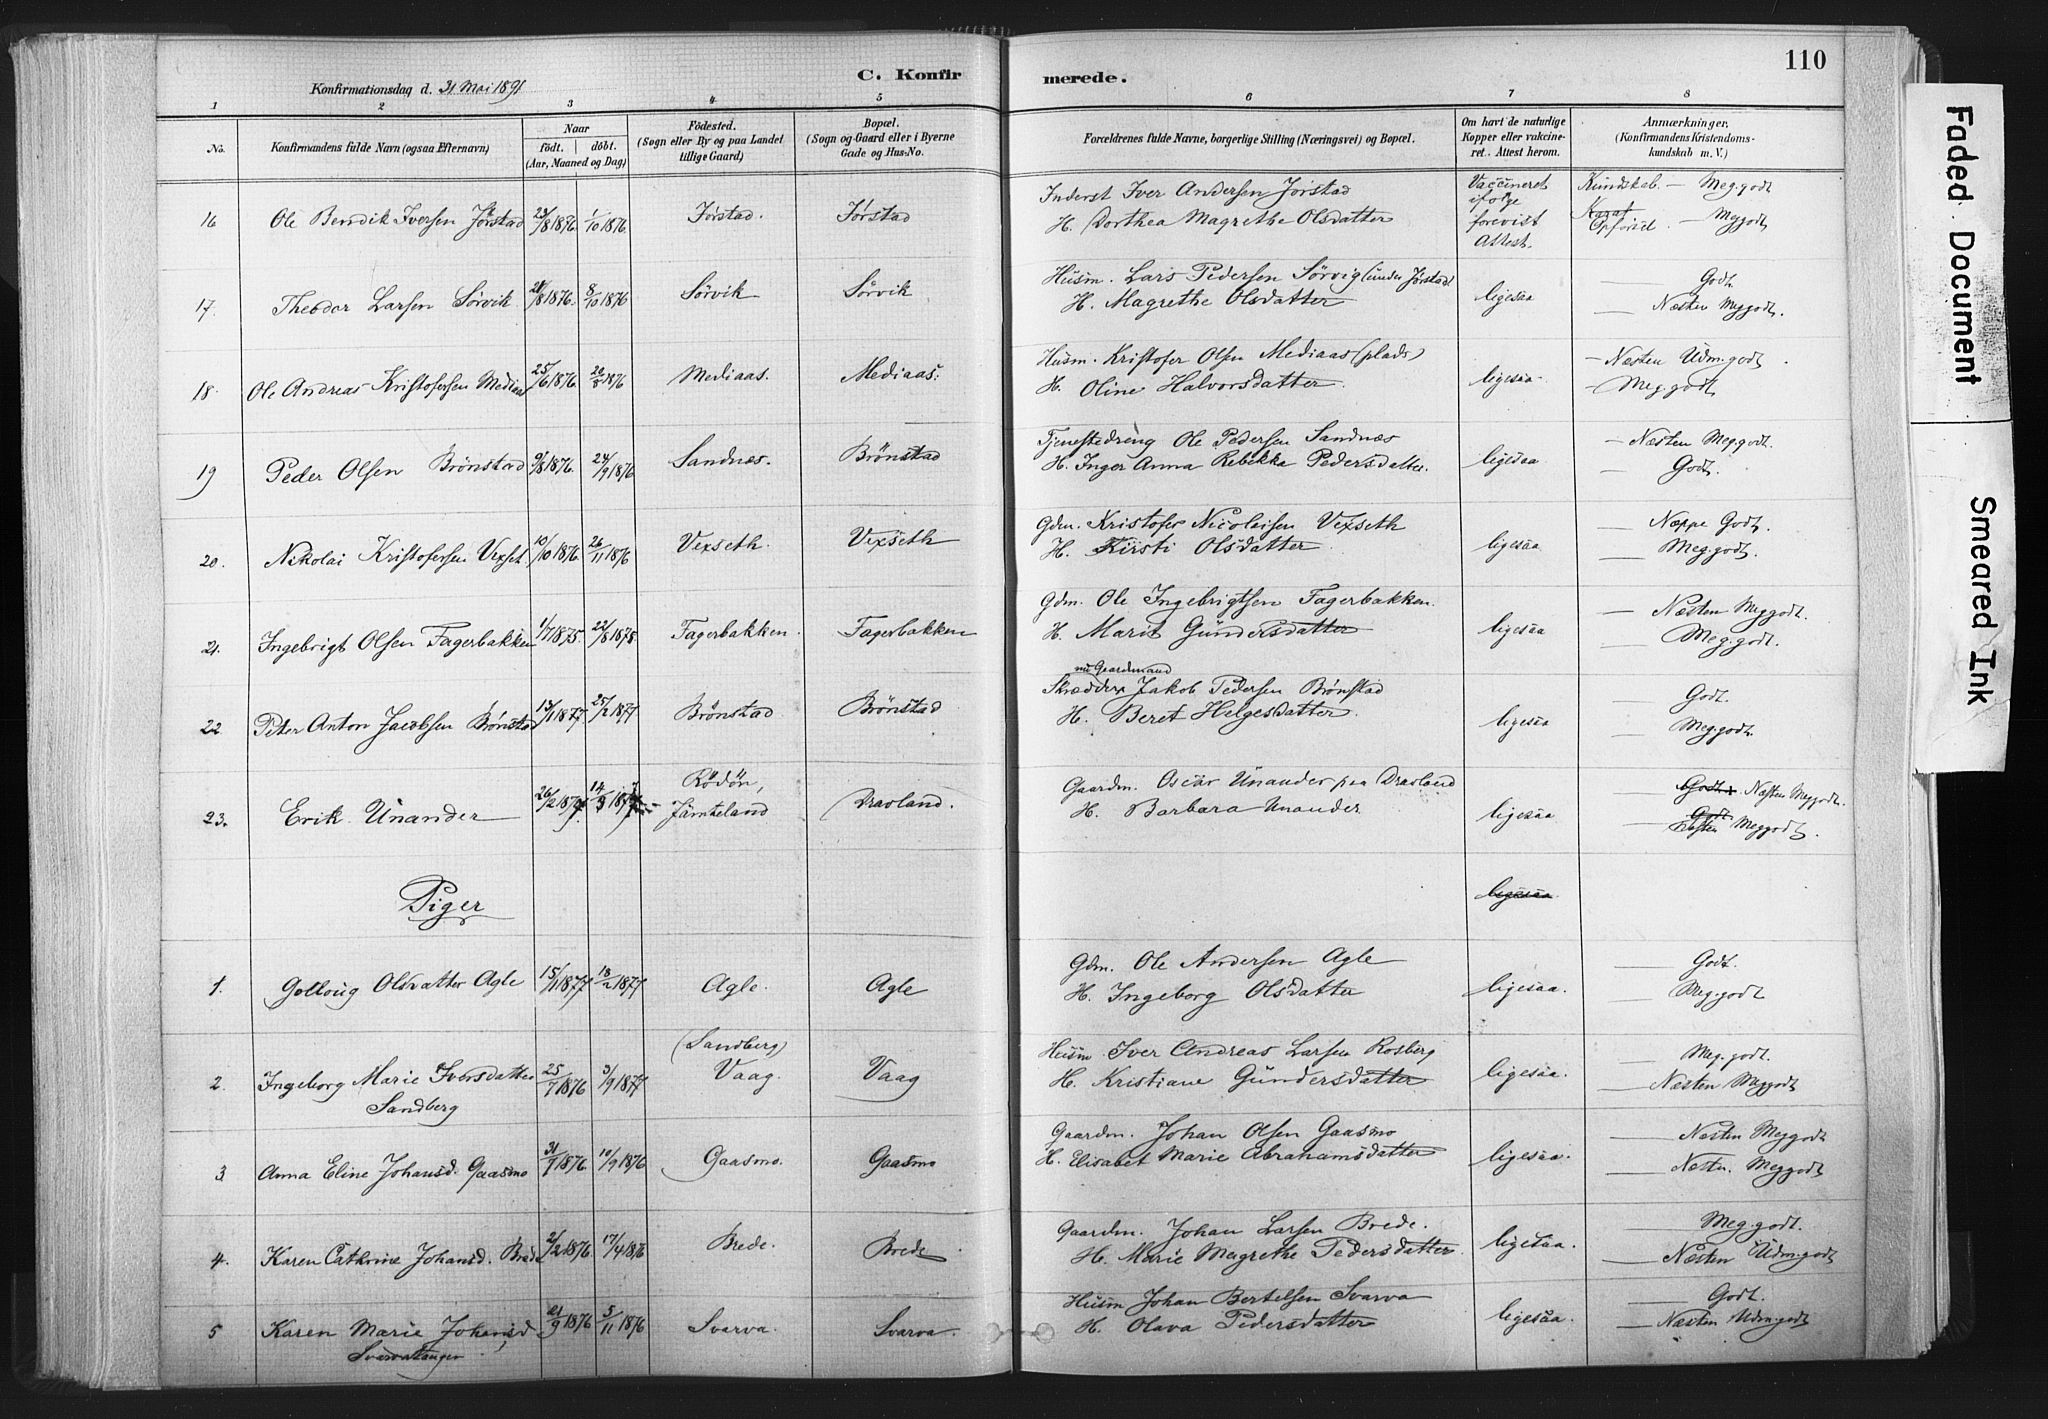 110
C. Konfirmerede.
Konfirmationsdag d. 31 Mai 1891
1 2 3 4 5 6 7 8
No. Konfirmandens fulde Navn (ogsaa Efternavn) Naar født. døbt. (Aar, Maaned og Dag) Fødested. (Sogn eller By og paa Landet tillige Gaard) Bopæl. (Sogn og Gaard eller i Byerne Gade og Hus-No. Forældrenes fulde Navne, borgerlige Stilling (Næringsvei) og Bopæl. Om havt de naturlige Kopper eller vakcineret. Attest herom. Anmærkninger. (Konfirmandens Kristendomskundskab m. V.)
16 Ole Bendik Iversen Jørstad 23/8 1876. 1/10 1876. Jørstad. Jørstad Inderst Iver Andersen Jørstad Vaccineret ifølge forevist Attest. Kundskab. — Meg.godt
H. Dorthea Magrethe Olsdatter Opførsel. — Meg godt
17. Theodor Larsen Sørvik 8/10 1876 Sørvik Sørvik Husm. Lars Pedersen Sørvig (under Jørstad) ligesaa — Godt
H. Magrethe Olsdatter — Næsten Meg godt.
18. Ole Andreas Kristofersen Mediaas 25/6 1876. Mediaas. Mediaas. Husm. Kristofer Olsen Mediaas (plads) ligesaa — Næsten Udm. godt
H. Oline Halvorsdatter — Meg. godt
19 Peder Olsen Brönstad 9/8 1876. 24/9 1876 Sandnæs. Brönstad Tjenestedreng Ole Pedersen Sandnæs ligesaa — Næsten Meg.godt.
H. Inger Anna Rebekka Pedersdatter. — Godt.
20. Nikolai Kristofersen Vexset 10/10 1876. 26/11 1876 Vexseth. Vexseth Gdm. Kristofer Nicolaisen Vexseth ligesaa — Noppe Godt.
H. Kirsti Olsdatter — Meg.godt.
21. Ingebrigt Olsen Fagerbakken 1/7 1875. 22/8 1875. Fagerbakken. Fagerbakken Gdm. Ole Ingebrigtsen Fagerbakken. ligesaa — Næsten Meg godt.
H. Marit Gundersdatter — Meg.godt.
22 Peter Anton Jacobsen Brönstad 13/1 1877 25/2 1877 Brönstad Brönstad nu Gaardmand
Skrædder Jakob Pedersen Brønstad ligesaa — Godt.
H. Beret Helgesdatter — Meg.godt.
23. Erik Unander Rödön, Jämteland Draoland. Gaardm. Oscär Unander paa Draoland ligesaa — Godt. Næsten Meg godt.
H. Barbara Unander — Godt Næsten Meg godt.
Piger ligesaa
1. Golloug Olsdatter Agle 15/1 1877 18/2 1877 Agle. Agle Gdm. Ole Andersen Agle ligesaa. — Godt.
H. Ingeborg Olsdatter — Meg.godt
2. Ingeborg Marie Iversdatter Sandberg 25/7 1876 3/9 1877 (Sandberg) Vaag. Vaag Husm Iver Andreas Larsen Rosberg ligesaa. — Meg. godt.
H. Kristiane Gundersdatter — Næsten Meg godt
3. Anna Eline Johansd. Gaasmo 10/9 1876 Gaasmo. Gaasmo Gaardm. Johan Olsen Gaasmo ligesaa. — Næsten Meg godt
H. Elisabet Marie Abrahamsdatter — Næsten Meg godt
4. Karen Cathrine Johansd. Brede 2/2 1876. 17/4 1876 Brede. Brede Gaardm. Johan Larsen Brede. ligesaa. — Meg.godt.
H. Marie Magrethe Pedersdatter. — Næsten Udm.godt
5 Karen Marie Johansd Svarvatanger 21/9 1876 5/11 1876 Svarva. Svarva. Husm Johan Bertelsen Svarva ligesaa. — Godt.
H. Olava Pedersdatter — Næsten Udm.godt
Faded Document
Smeared Ink